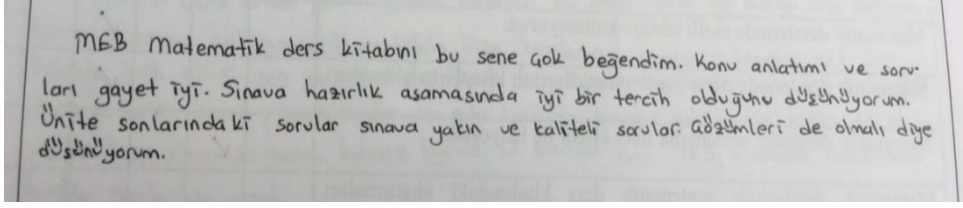 MEB Matematik ders kitabını bu sene çok beğendim. Konu anlatımı ve soru-
ları gayet iyi. Sınava hazırlık aşamasında iyi bir tercih olduğunu düşünüyorum.
Ünite sonlarındaki sorular sınava yakın ve kaliteli sorular. Çözümleri de olmalı diye
düşünüyorum.